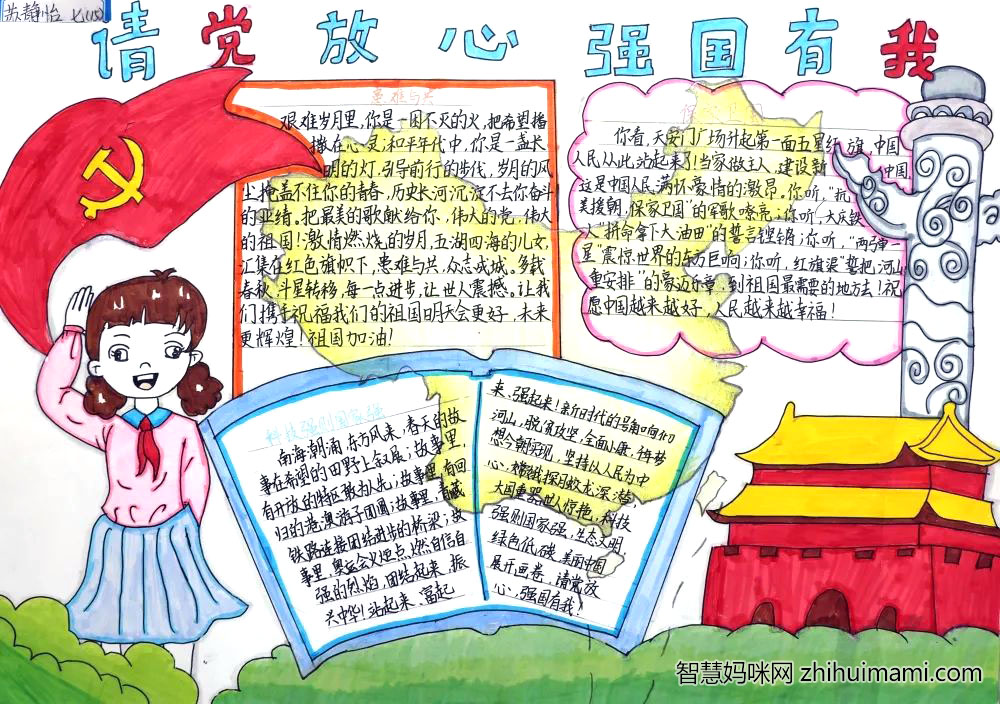 苏静怡 七(15)
请党放心 强国有我
患难与共
艰难岁月里,你是一困不灭的火,把希望播
撒在心灵;和平年代中,你是一盏长
明的灯.引导前行的步伐,岁月的风
尘掩盖不住你的青春,历史长河沉淀不去你奋斗
的业绩。把最美的歌献给你、伟大的党,伟大
的祖国!激情燃烧的岁月,五湖四海的儿女,
汇集在红色旗帜下,患难与共,众志成城。多载
春秋,斗星转移,每一点进步,让世人震撼。让我
们携手祝福我们的祖国明天会更好,未来
更辉煌!祖国加油!
你看,天安门广场升起第一面五星红旗,中国
人民从此站起来了!当家做主人,建设新中国,
这是中国人民满怀豪情的激昂。你听,“抗
美援朝,保家卫国”的军歌嘹亮;你听,大庆铁
人“拼命拿下大油田”的誓言铿锵;你听,“两弹一
星”震惊世界的东方巨响;你听,红旗渠“誓把河山
重安排”的豪迈乐章,到祖国最需要的地方去!祝
愿中国越来越好,人民越来越幸福!
科技强则国家强
南海潮涌,东方风来,春天的故
事在希望的田野上叙展;故事里,
有开放的特区敢为人先;故事里,有回
归的港澳游子团圆;故事里,青藏
铁路连接团结进步的桥梁;故
事里,奥运会火炬点燃自信自
强的烈焰.团结起来,振
兴中华!站起来、富起
来、强起来!新时代的号角响彻
河山,脱贫攻坚,全面小康,侮梦
想今朝实现,坚持以人民为中
心,嫦娥探月蛟龙深潜,
大国重器世人惊艳,科技
强则国家强,生态文明
绿色低碳,美丽中国
展开画卷,请党放
心,强国有我!
智慧妈咪网 zhihuimami.com